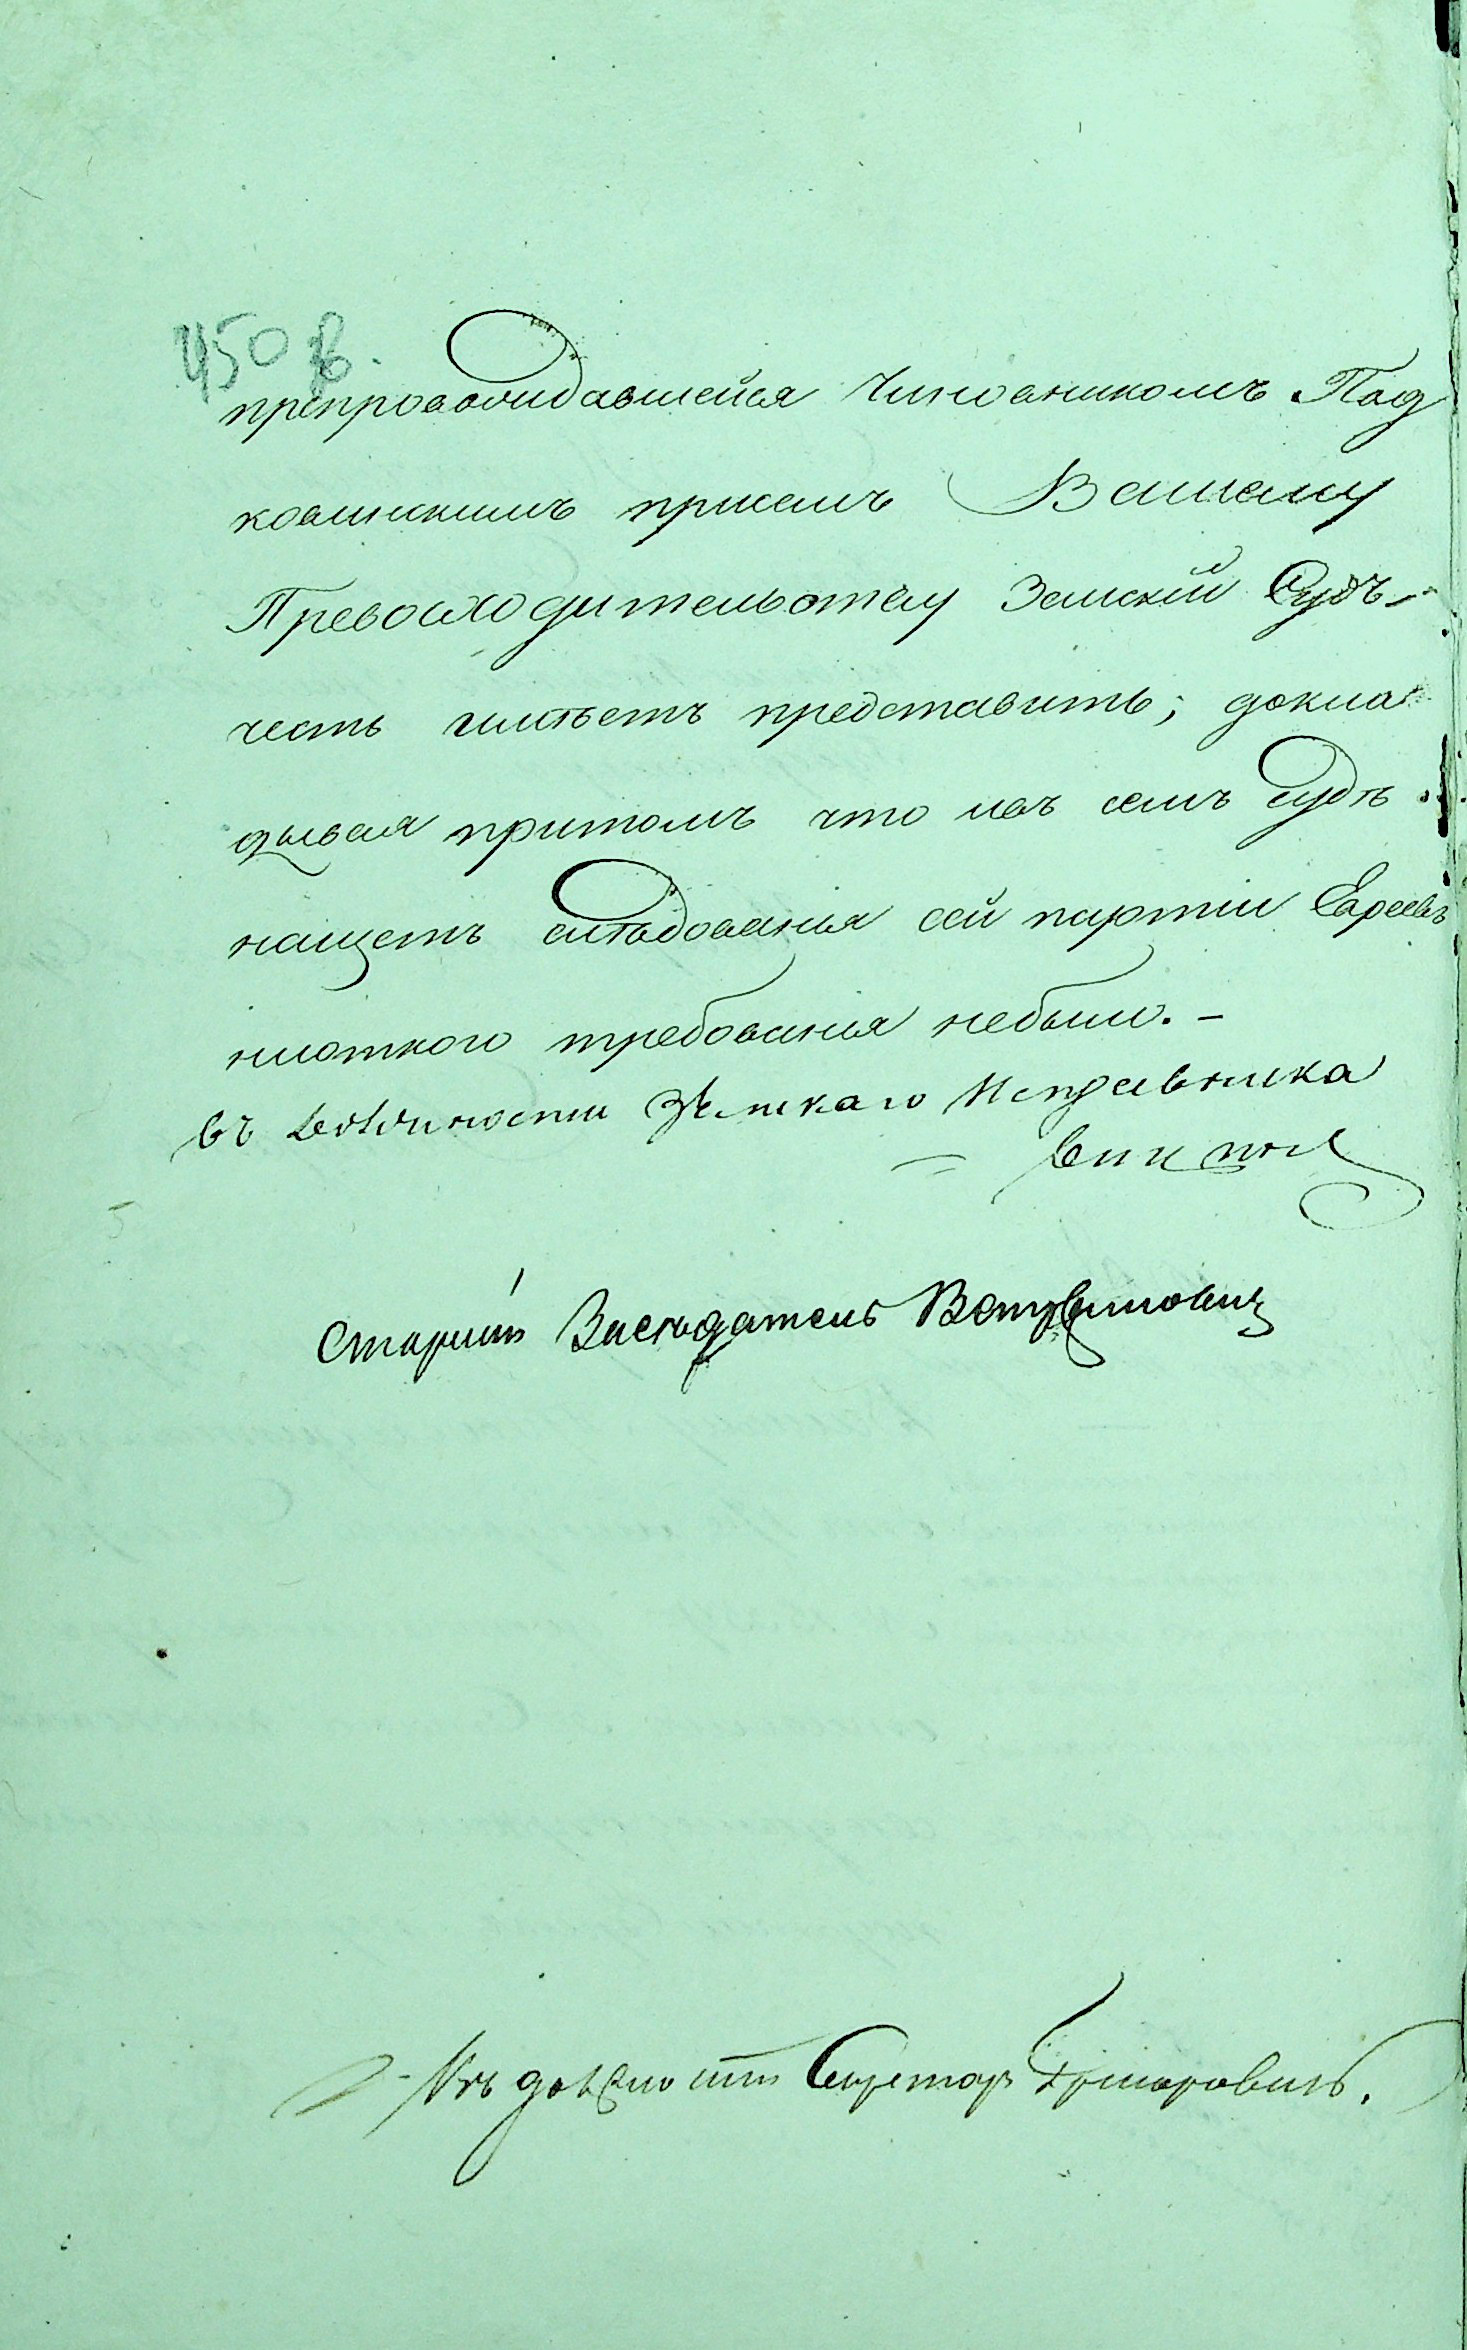 450 об.
препровождавшейся Чиновникомъ Под
ковинскимъ присемъ Вашему
Превосходительству Земскій Судъ
честь имѣетъ представить; докла
дывая притомъ что изъ семъ Судѣ
нащетъ слѣдованія сей партіи Евреевъ
никакого требованія небыло. –
въ должности Земскаго Исправника
Старшій Засѣдатель
въ должности Секретаря Григоровичъ.